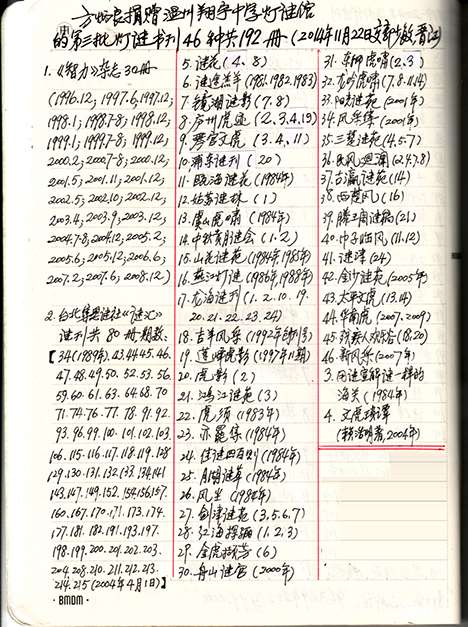 方炳良捐赠温州翔宇中学灯谜馆
的第三批灯谜书刊46种共192册(2014年11月22日文虎摘锦晋江)
1.《智力》杂志30册
(1996.12; 1997.6, 1997.12;
1998.1; 1998.7-8, 1998.12;
1999.1; 1999.7-8, 1999.12;
2000.2; 2000.7-8; 2000.12;
2001.5; 2001.11; 2001.12;
2002.5; 2002.10; 2002.12;
2003.4; 2003.9; 2003.12;
2004.7-8, 2004.12; 2005.2;
2005.6; 2005.12; 2006.6;
2007.2; 2007.6; 2008.12)
2.台北集思谜社《谜汇》
谜刊共80册期数:
【34(1989年). 43.44.45.46.
47.48.49.50.52.53.56.
59.60.61.63.64.68.70
71.74.76.77.78.91.92.
93.96.99.100.101.102.103.
106.115.116.117.118.119.128
129.130.131.132.133.134.141
143.147.149.152.154.156.157.
160.167.170.171.173.174.
177.181.182.191.193.197.
198.199.200.201.202.203.
204.208.210.211.212.213.
214.215(2004年4月1日)】
5.谜花(4、8)
6.谜途羔羊(1981.1982.1983)
7.镜湖谜影(7.8)
8.泸州虎迹(2、3.4.19)
9.琴宫文虎(3.4、11)
10.浦东谜刊(20)
11.临海谜花(1984年)
12.姑苏谜林(1)
13.虞山虎啸(1984年)
14.中秋有谜会(1.2)
15.山花谜苑(1984年.1985年)
16.燕山灯谜(1986年,1988年)
17.龙海谜刊(1、2.10.19.
20.21.22.23.24)
18.古羊风采(1992年创刊号)
19.莲峰虎影(1997年11期)
20.虎影(2)
21.鸿江谜苑(3)
22.虎须(1983年)
23.亦罷集(1984年)
24.佳谜四百则(1984年)
25.月湖谜草(1984年)
26.风尘(1984年)
27.剑津谜苑(3,5.6.7)
28.江海探骊(1、2、3)
29.金虎拾芬(6)
30.舟山谜宫(2000年)
31.东柳虎啸(2、3)
32.龙吟虎啸(7,8.11.14)
33.阳光谜苑(2001年)
34.风乐集(2001年)
35.三楚谜苑(4.5.7)
36.(2.4.7.8)
37.台瀛谜苑(14)
38.西蔗风(16)
39.腾工周谜稿(21)
40.中子临风(11.12)
41.谜潭(24)
42.金沙谜苑(2005年)
43.太平文虎(13.14)
44.华南虎(2007、2009)
45.残疾人欢乐谷(18.20)
46.新风采(2007年)
3.同谜重解谜一样的
海关(1984年)
4.文虎琐谭
(赖浩明著,2004年)
BMDM